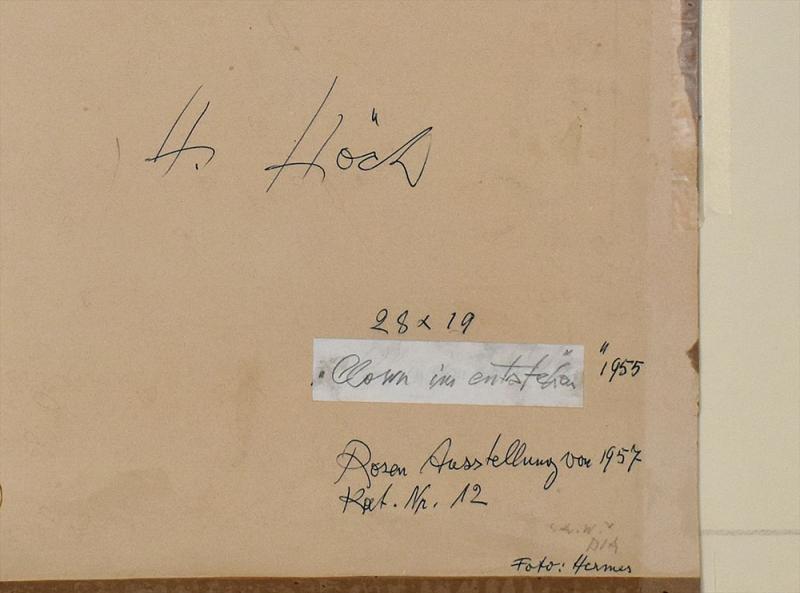 H. Höch
28 x 19
"Clown im entstehen" 1955
Rosen Ausstellung von 1957
Kat. Nr. 12
Foto: Hermes